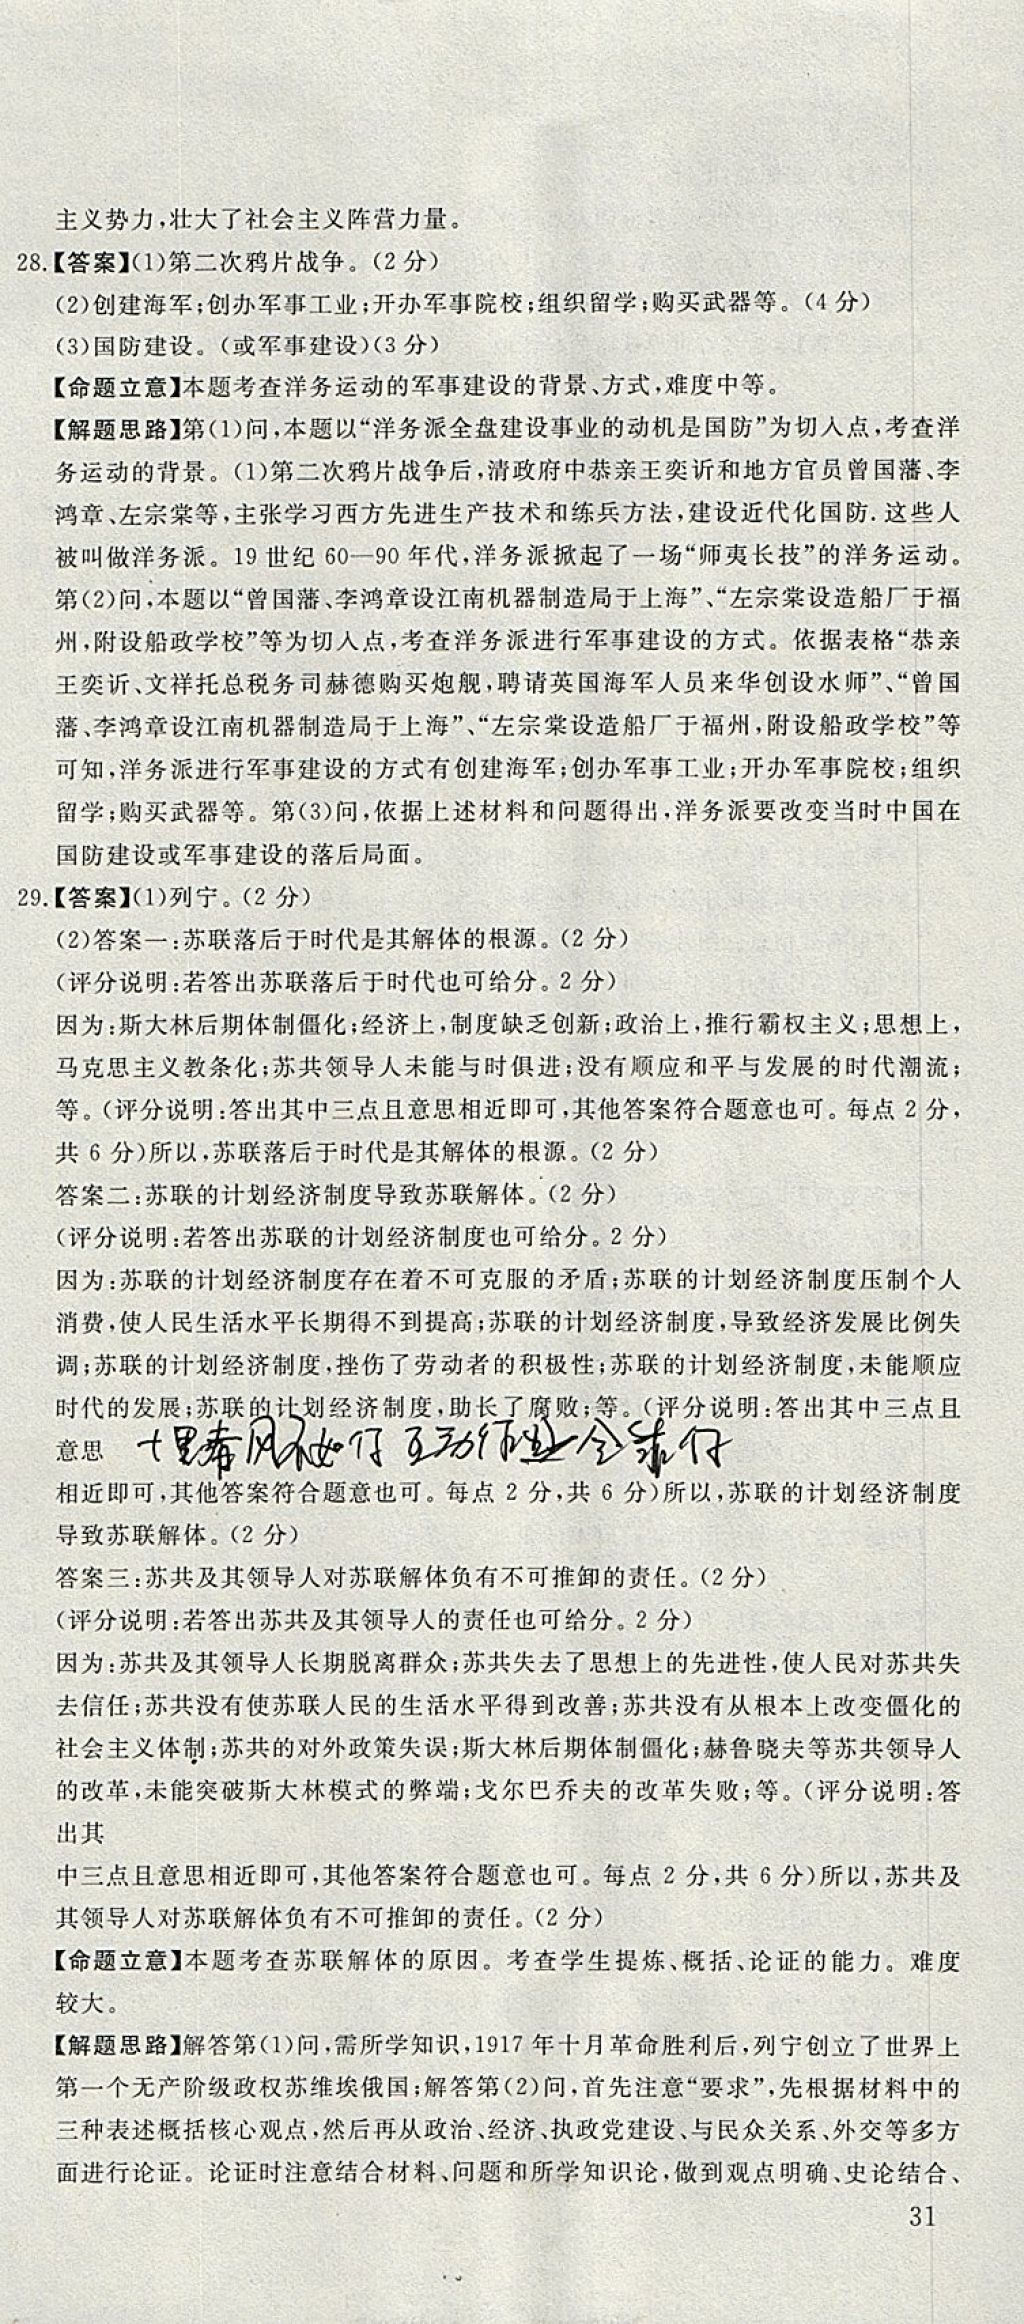 主义势力,壮大了社会主义阵营力量。
28.【答案】(1)第二次鸦片战争。(2 分)
(2)创建海军;创办军事工业;开办军事院校;组织留学;购买武器等。(4 分)
(3)国防建设。(或军事建设)(3 分)
【命题立意】本题考查洋务运动的军事建设的背景、方式,难度中等。
【解题思路】第(1)问,本题以“洋务派全盘建设事业的动机是国防”为切入点,考查洋
务运动的背景。(1)第二次鸦片战争后,清政府中恭亲王奕䜣和地方官员曾国藩、李
鸿章、左宗棠等,主张学习西方先进生产技术和练兵方法,建设近代化国防.这些人
被叫做洋务派。19 世纪 60—90 年代,洋务派掀起了一场“师夷长技”的洋务运动。
第(2)问,本题以“曾国藩、李鸿章设江南机器制造局于上海”、“左宗棠设造船厂于福
州,附设船政学校”等为切入点,考查洋务派进行军事建设的方式。依据表格“恭亲
王奕䜣、文祥托总税务司赫德购买炮舰,聘请英国海军人员来华创设水师”、“曾国
藩、李鸿章设江南机器制造局于上海”、“左宗棠设造船厂于福州,附设船政学校”等
可知,洋务派进行军事建设的方式有创建海军;创办军事工业;开办军事院校;组织
留学;购买武器等。第(3)问,依据上述材料和问题得出,洋务派要改变当时中国在
国防建设或军事建设的落后局面。
29.【答案】(1)列宁。(2 分)
(2)答案一:苏联落后于时代是其解体的根源。(2 分)
(评分说明:若答出苏联落后于时代也可给分。2 分)
因为:斯大林后期体制僵化;经济上,制度缺乏创新;政治上,推行霸权主义;思想上,
马克思主义教条化;苏共领导人未能与时俱进;没有顺应和平与发展的时代潮流;
等。(评分说明:答出其中三点且意思相近即可,其他答案符合题意也可。每点 2 分,
共 6 分)所以,苏联落后于时代是其解体的根源。(2 分)
答案二:苏联的计划经济制度导致苏联解体。(2 分)
(评分说明:若答出苏联的计划经济制度也可给分。2 分)
因为:苏联的计划经济制度存在着不可克服的矛盾;苏联的计划经济制度压制个人
消费,使人民生活水平长期得不到提高;苏联的计划经济制度,导致经济发展比例失
调;苏联的计划经济制度,挫伤了劳动者的积极性;苏联的计划经济制度,未能顺应
时代的发展;苏联的计划经济制度,助长了腐败;等。(评分说明:答出其中三点且
意思 十里春风不如仔 互动作业 仔
相近即可,其他答案符合题意也可。每点 2 分,共 6 分)所以,苏联的计划经济制度
导致苏联解体。(2 分)
答案三:苏共及其领导人对苏联解体负有不可推卸的责任。(2 分)
(评分说明:若答出苏共及其领导人的责任也可给分。2 分)
因为:苏共及其领导人长期脱离群众;苏共失去了思想上的先进性,使人民对苏共失
去信任;苏共没有使苏联人民的生活水平得到改善;苏共没有从根本上改变僵化的
社会主义体制;苏共的对外政策失误;斯大林后期体制僵化;赫鲁晓夫等苏共领导人
的改革,未能突破斯大林模式的弊端;戈尔巴乔夫的改革失败;等。(评分说明:答
出其
中三点且意思相近即可,其他答案符合题意也可。每点 2 分,共 6 分)所以,苏共及
其领导人对苏联解体负有不可推卸的责任。(2 分)
【命题立意】本题考查苏联解体的原因。考查学生提炼、概括、论证的能力。难度
较大。
【解题思路】解答第(1)问,需所学知识,1917 年十月革命胜利后,列宁创立了世界上
第一个无产阶级政权苏维埃俄国;解答第(2)问,首先注意“要求”,先根据材料中的
三种表述概括核心观点,然后再从政治、经济、执政党建设、与民众关系、外交等多方
面进行论证。论证时注意结合材料、问题和所学知识论,做到观点明确、史论结合、
31